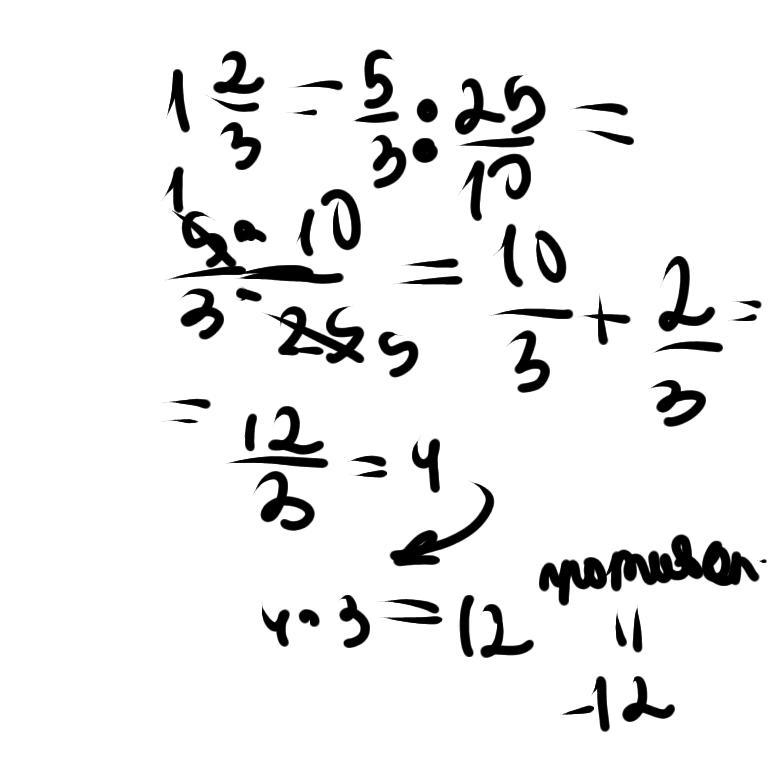 1 2/3 = 5/3 : 25/10 =
1 5 · 10 / 3 · 25 5 = 10/3 + 2/3 =
= 12/3 = 4
4 · 3 = 12
"
-12